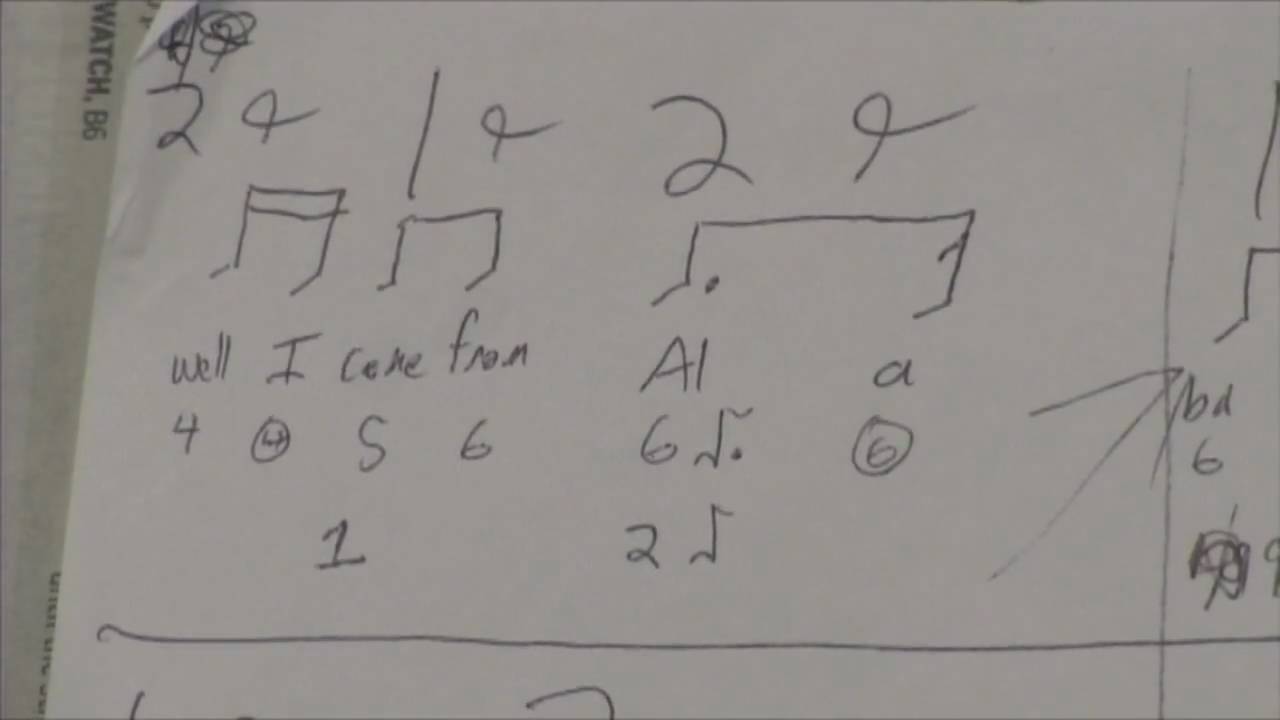 WATCH, B6
2 & 1 & 2 &
well I come from Al a ba
4 4 5 6 6 ♪. 6 6
1 2 ♪